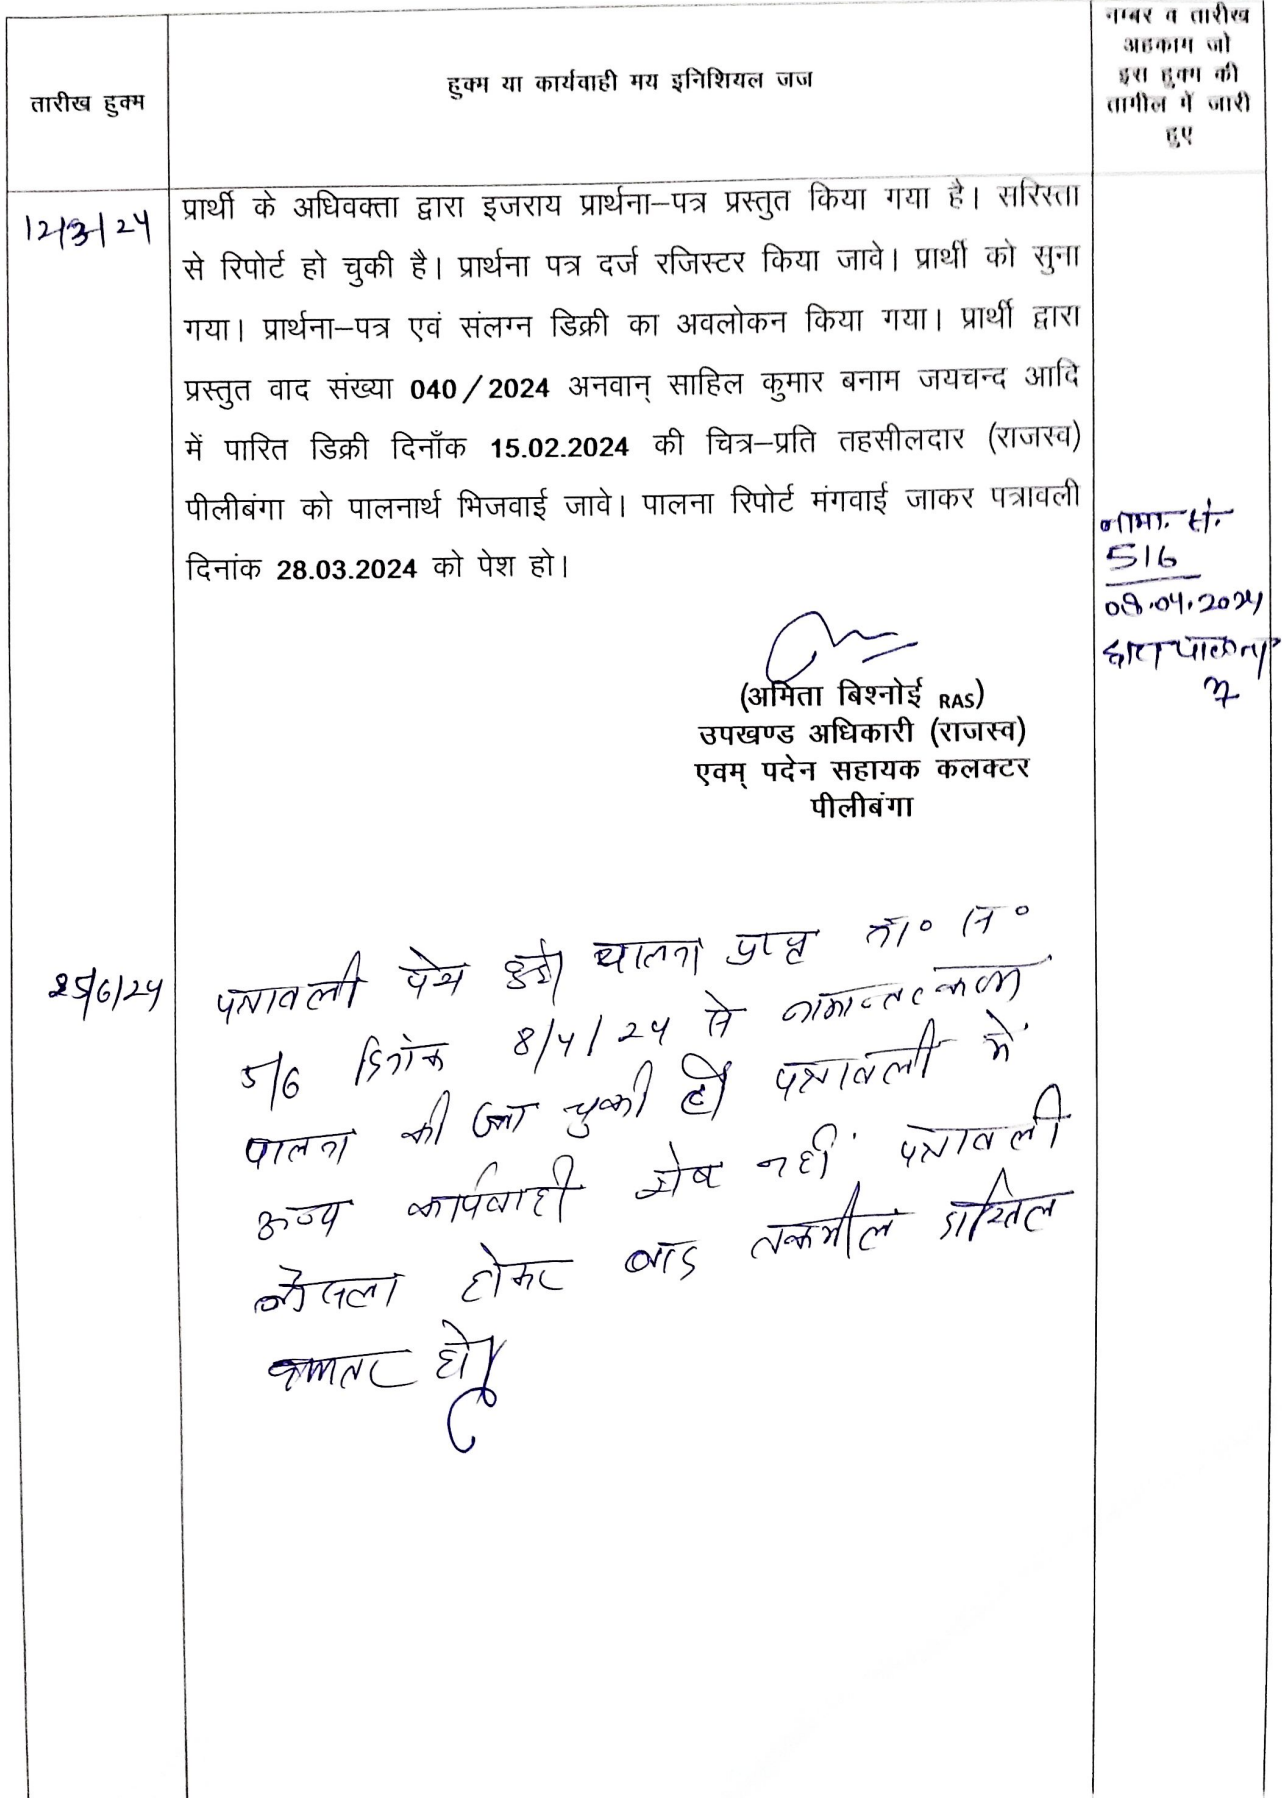 तारीख हुक्म
हुक्म या कार्यवाही मय इनिशियल जज
नम्बर व तारीख
अहकाम जो
इस हुक्म की
तामील में जारी
हुए
12/3/24
प्रार्थी के अधिवक्ता द्वारा इजराय प्रार्थना–पत्र प्रस्तुत किया गया है। सरिस्ता
से रिपोर्ट हो चुकी है। प्रार्थना पत्र दर्ज रजिस्टर किया जावे। प्रार्थी को सुना
गया। प्रार्थना–पत्र एवं संलग्न डिक्री का अवलोकन किया गया। प्रार्थी द्वारा
प्रस्तुत वाद संख्या 040/2024 अनवान् साहिल कुमार बनाम जयचन्द आदि
में पारित डिक्री दिनाँक 15.02.2024 की चित्र–प्रति तहसीलदार (राजस्व)
पीलीबंगा को पालनार्थ भिजवाई जावे। पालना रिपोर्ट मंगवाई जाकर पत्रावली
दिनांक 28.03.2024 को पेश हो।
नामा. सं.
516
08.04.2024
द्वारा पालना
(अमिता बिश्नोई RAS)
उपखण्ड अधिकारी (राजस्व)
एवम् पदेन सहायक कलक्टर
पीलीबंगा
25/6/24
पत्रावली पेश हुई। पालना प्राप्त
516 दिनांक 8/4/24 से नामान्तरकरण
पालना की जा चुकी है। पत्रावली में
अन्य कार्यवाही शेष नहीं पत्रावली
फैसला होकर बाद तकमील दाखिल
दफ्तर हो।